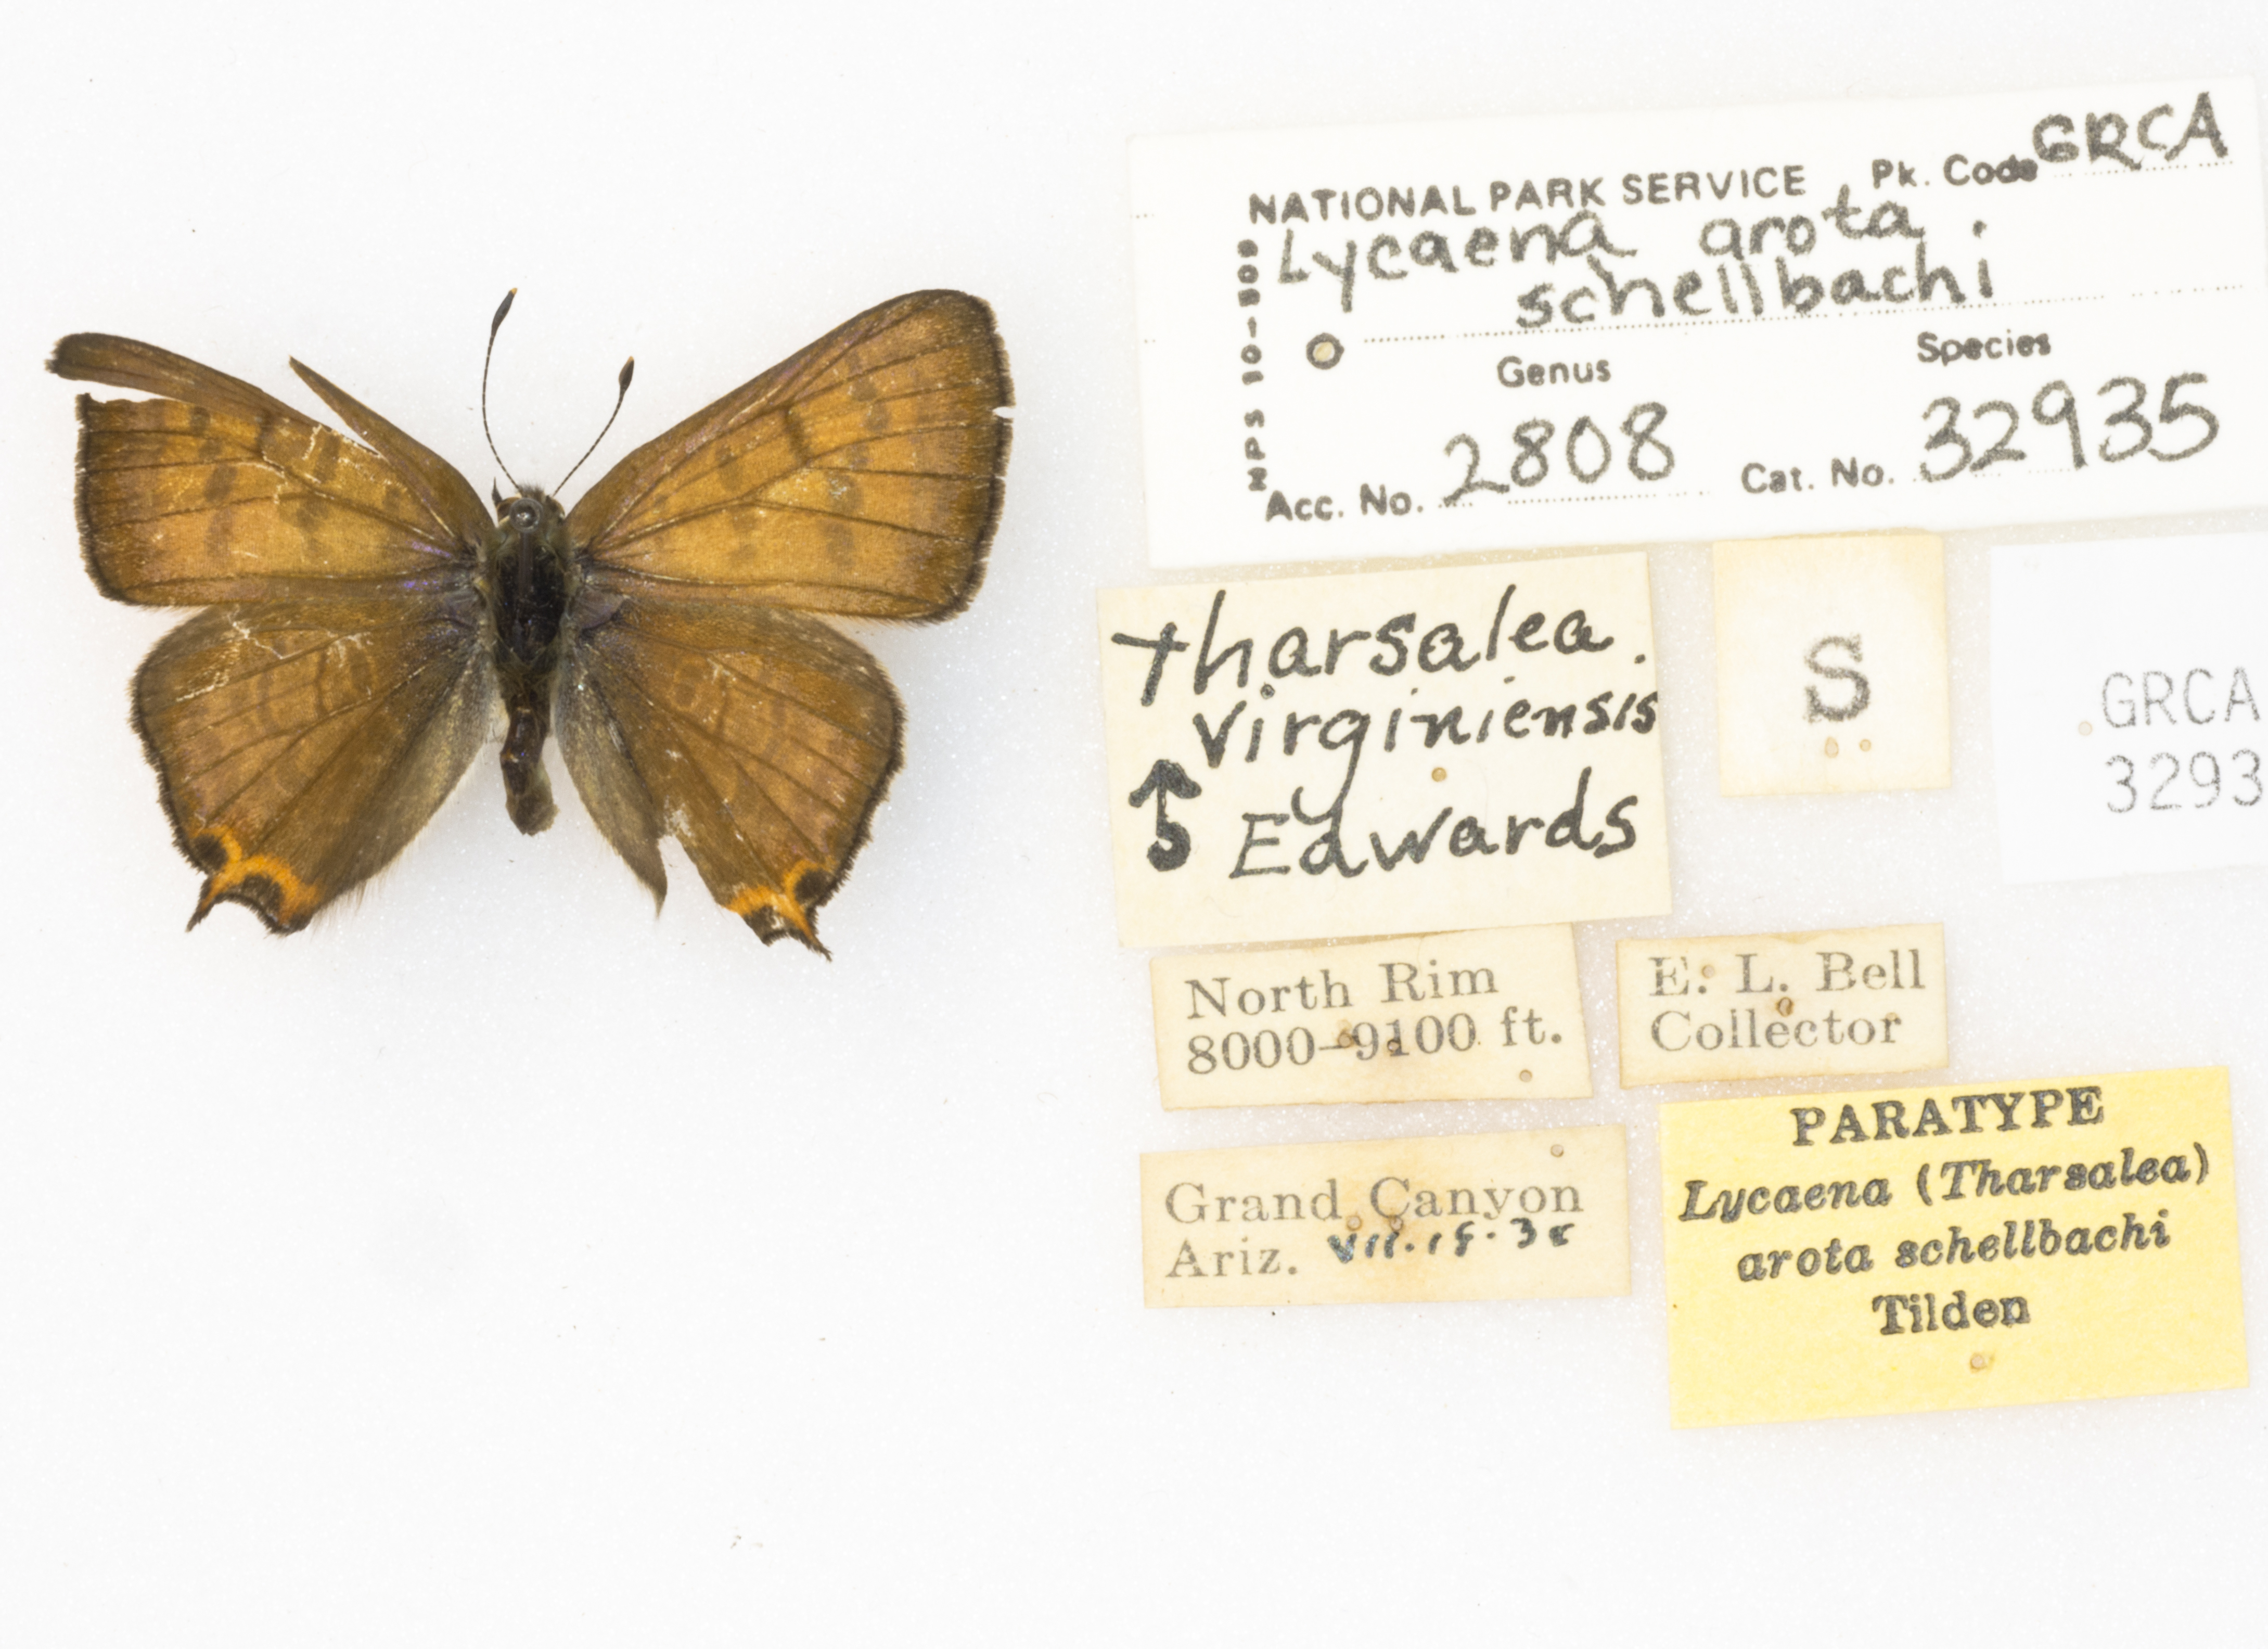 NATIONAL PARK SERVICE Pk. Code GRCA
Lycaena arota
schellbachi
Genus Species
Acc. No. 2808 Cat. No. 32935
NPS 10-509
Tharsalea
virginiensis
Edwards
S
GRCA
3293
North Rim
8000–9100 ft.
E. L. Bell
Collector
Grand Canyon
Ariz.
PARATYPE
Lycaena (Tharsalea)
arota schellbachi
Tilden